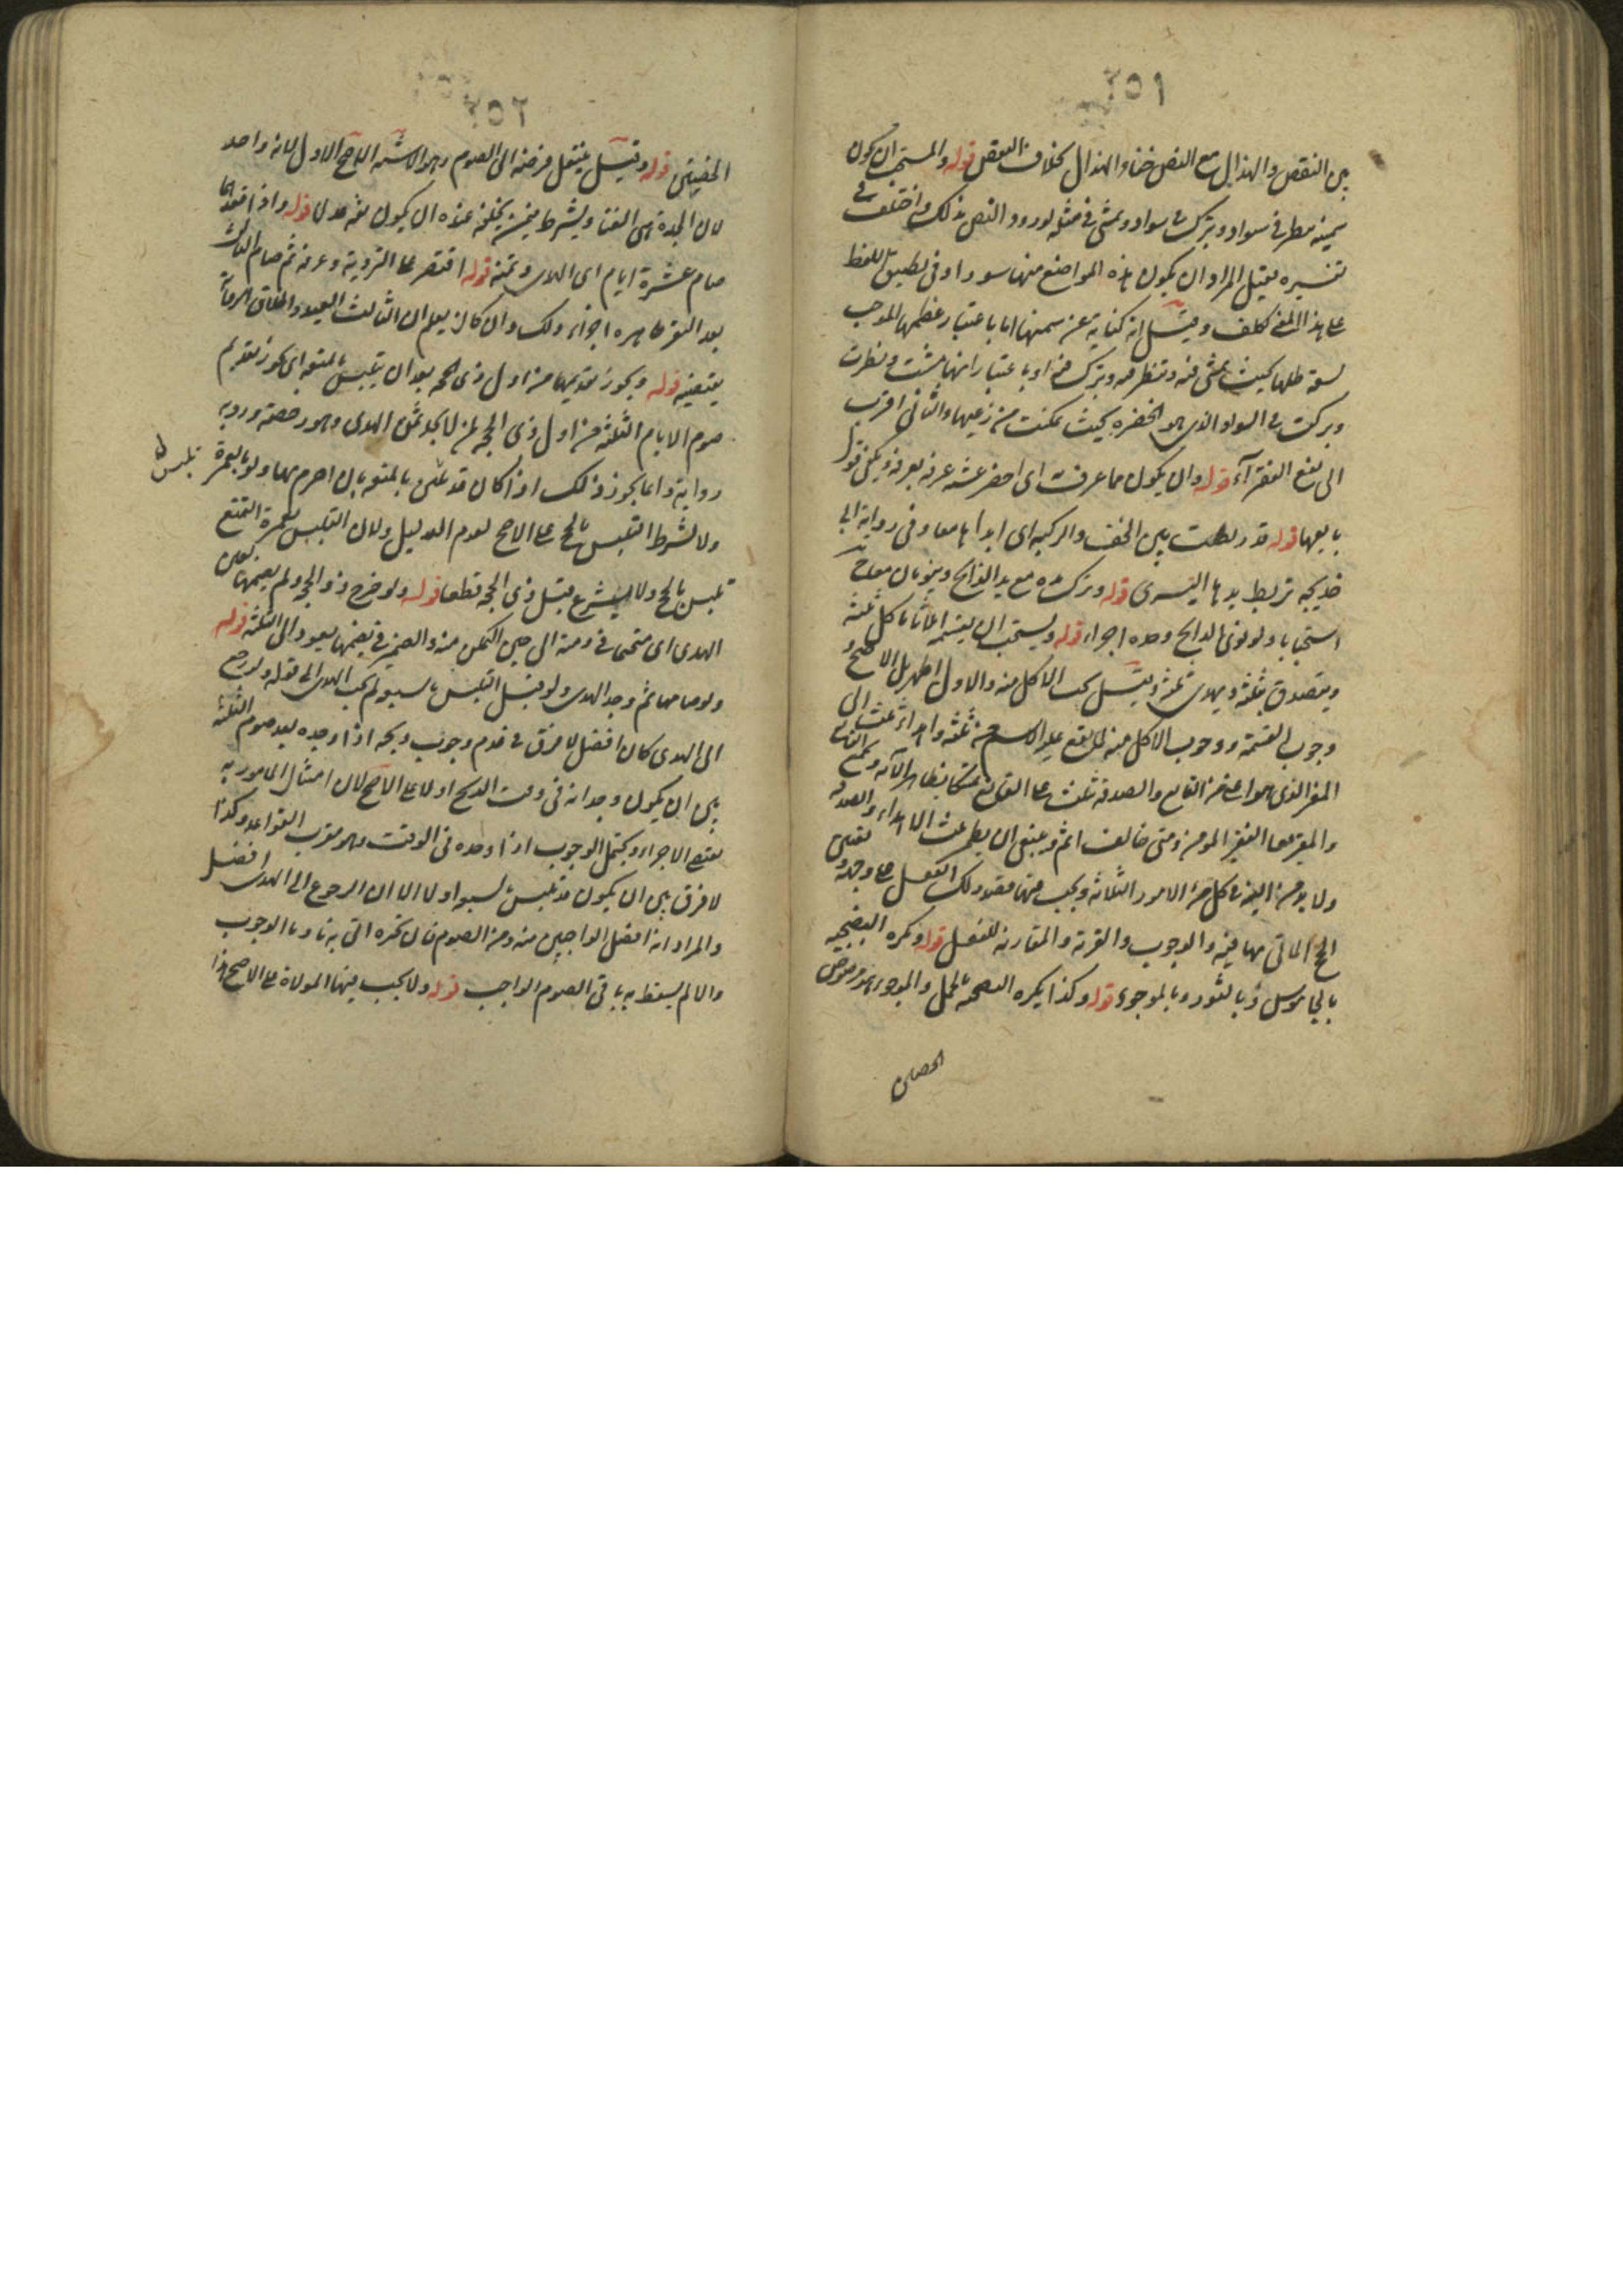 ٢٥١
بين النقص والهزال مع النص خفاء الهزال بخلاف النقص قوله والمستحب ان يكون
سمينة ينظر في سواد ويبرك في سواد ويمشي في مثله لورود النص بذلك واختلف في
تفسيره فقيل المراد ان يكون هذه المواضع منها سودا وفي تطبيق اللفظ
على هذا المعنى تكلف وقيل انه كناية عن سمنها اما باعتبار عظمها الموجب
لسعة ظلها بحيث تمشي فيه وتنظر فيه وتبرك فيه او باعتبار انها مشت ونظرت
وبركت في السواد الذي هو الخضرة بحيث تمكنت من رعيها والثاني اقرب
الى نفع الفقراء قوله وان يكون مما عرف به اي احضر عشية عرفة بعرفة ويكفي قول
بايعها قوله قد ربطت بين الخف والركبة اي يداها معا وفي رواية ابي
خديجة تربط يدها اليسرى قوله وترك يده مع يد الذابح وينويان معا
استحبابا ولو نوى الذابح وحده اجزاء قوله ويستحب ان يقسمه اثلاثا ياكل ثلثه
ويتصدق بثلثه ويهدي ثلثه وقيل يجب الاكل منه والاول اظهر بل الاصح
وجوب القسمة ووجوب الاكل منه لما يقع عليه الاسم من ثلثه واهداء ثلث الى
المعتر الذي هو اغنى من القانع والصدقة بثلث على القانع تمسكا بظاهر الآية
والمعتر معا الفقر المؤمن ومتى خالف اثم وينبغي ان يضمن ثلث الاهداء والصدقة
ولا بد من النية في كل من الامور الثلاثة ويجب فيها قصد ذلك الفعل على وجهه
الحج الماتي بها فيه والوجوب والقربة والمقارنة للفعل قوله ويكره التضحية
بالجاموس وبالثور وبالموجوء قوله وكذا يكره التضحية بالجمل والموجوء هو مرضوض
الخصيتين
٢٥٢
الخصيتين قوله وقيل ينتقل فرضه الى الصوم وهو الاشبه الاصح الاول لانه واجد
لان الجدة هي الغنا ويشترط فيمن يخلفه عنده ان يكون ثقة عدلا قوله واذا فقدهما
صام عشرة ايام اي الهدي وثمنه قوله اقتصر على التروية وعرفة ثم صام الثالث
بعد النفر ظاهره اجزاء ذلك وان كان يعلم ان الثالث العيد واطلاق الرواية
يقتضيه قوله ويجوز تقديمها من اول ذي الحجة بعد ان يتلبس بالمتعة اي يجوز تقديم
صوم الايام الثلثة من اول ذي الحجة لمن لا يجد ثمن الهدي وهو رخصة ورد به
رواية وانما يجوز ذلك اذا كان قد تلبس بالمتعة بان احرم بها ولو بالعمرة
ولا يشترط التلبس بالحج على الاصح لعدم الدليل ولان التلبس بعمرة التمتع
تلبس بالحج ولا يشرع قبل ذي الحجة قطعا قوله ولو خرج ذو الحجة ولم يصمها تعين
الهدي اي يبقى في ذمته الى حين التمكن منه والضمير في يصمها يعود الى الثلثة قوله
ولو صامها ثم وجد الهدي ولو قبل التلبس بالسبعة لم يجب الهدي الى قوله ولو رجع
الى الهدي كان افضل لا فرق في عدم وجوب ذبحه اذا وجده بعد صوم الثلثة
بين ان يكون وجدانه في وقت الذبح او لا على الاصح لان امتثال المامور به
يقتضي الاجزاء ويحتمل الوجوب اذا وجده في الوقت وهو مقرب القواعد وكذا
لا فرق بين ان يكون قد تلبس بالسبعة او لا الا ان الرجوع الى الهدي افضل
والمراد انه افضل الواجبين منه ومن الصوم فان نحره اتى به ناويا الوجوب
والا لم يسقط به باقي الصوم الواجب قوله ولا يجب فيها الموالاة على الاصح هذا